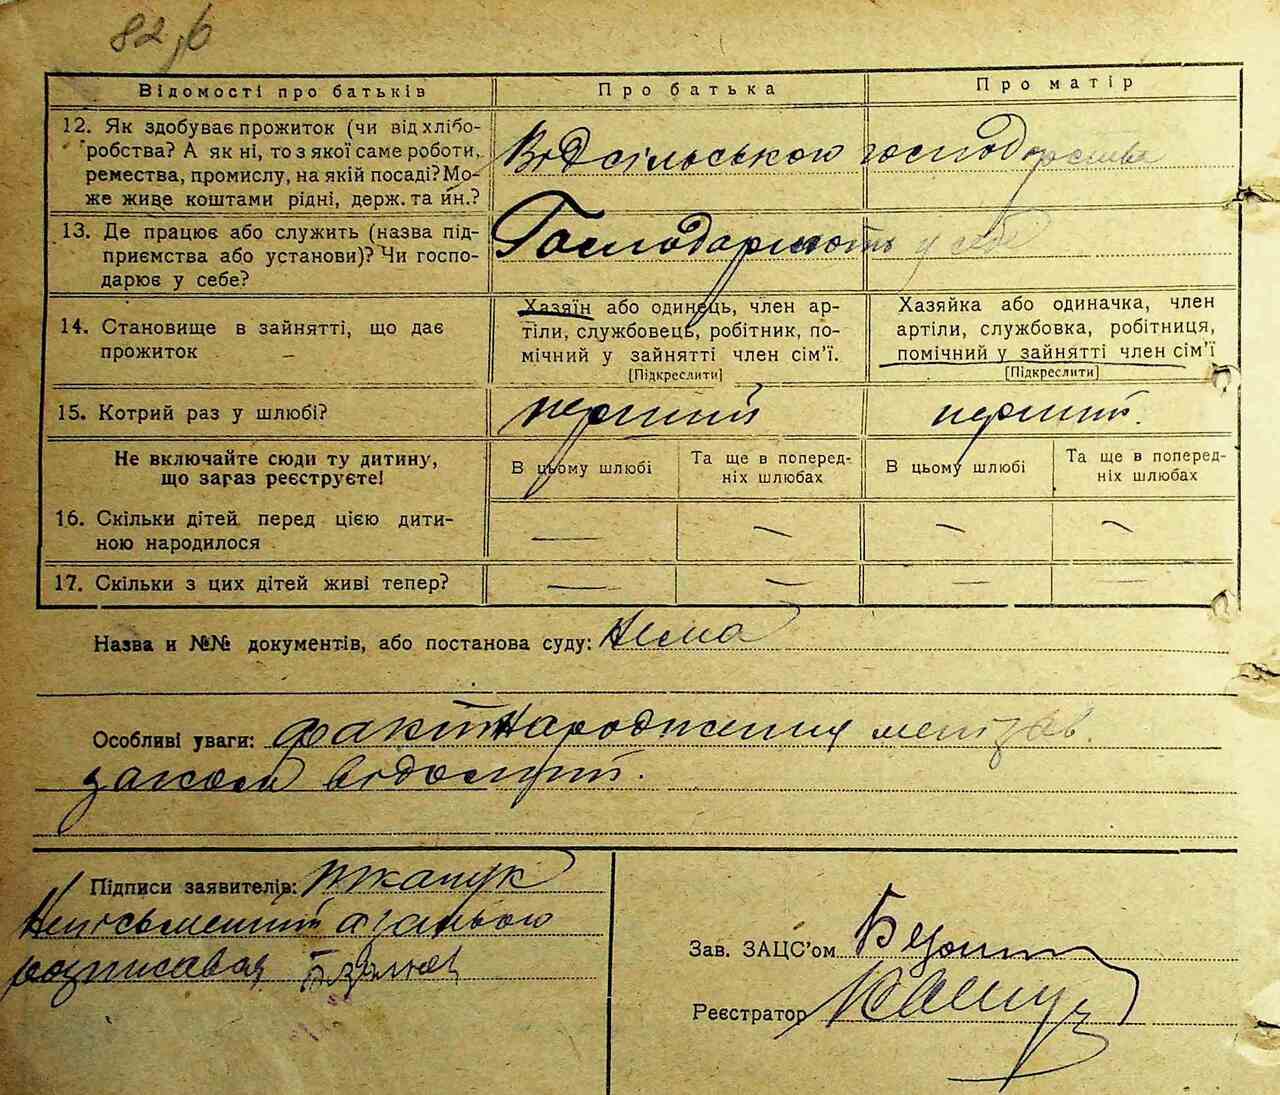 82,б
Відомості про батьків
Про батька
Про матір
12. Як здобуває прожиток (чи від хлібо-
робства? А як ні, то з якої саме роботи,
ремества, промислу, на якій посаді? Мо-
же живе коштами рідні, держ. та йн.?
Від сільського господарства
13. Де працює або служить (назва під-
приємства або установи)? Чи госпо-
дарює у себе?
Господарюють у себе
14. Становище в зайнятті, що дає
прожиток
Хазяїн або одинець, член ар-
тіли, службовець, робітник, по-
мічний у зайнятті член сім'ї.
[Підкреслити]
Хазяйка або одиначка, член
артіли, службовка, робітниця,
помічний у зайнятті член сім'ї
[Підкреслити]
15. Котрий раз у шлюбі?
перший
перший.
Не включайте сюди ту дитину,
що зараз реєструєте!
В цьому шлюбі
Та ще в поперед-
ніх шлюбах
В цьому шлюбі
Та ще в поперед-
ніх шлюбах
16. Скільки дітей перед цією дити-
ною народилося
— — — —
17. Скільки з цих дітей живі тепер?
— — — —
Назва и №№ документів, або постанова суду: Нема
Особливі уваги: факт народження
відомий.
Підписи заявителів: Ткачук
Неписьменний а за нього
розписався
Зав. ЗАЦС'ом
Реєстратор